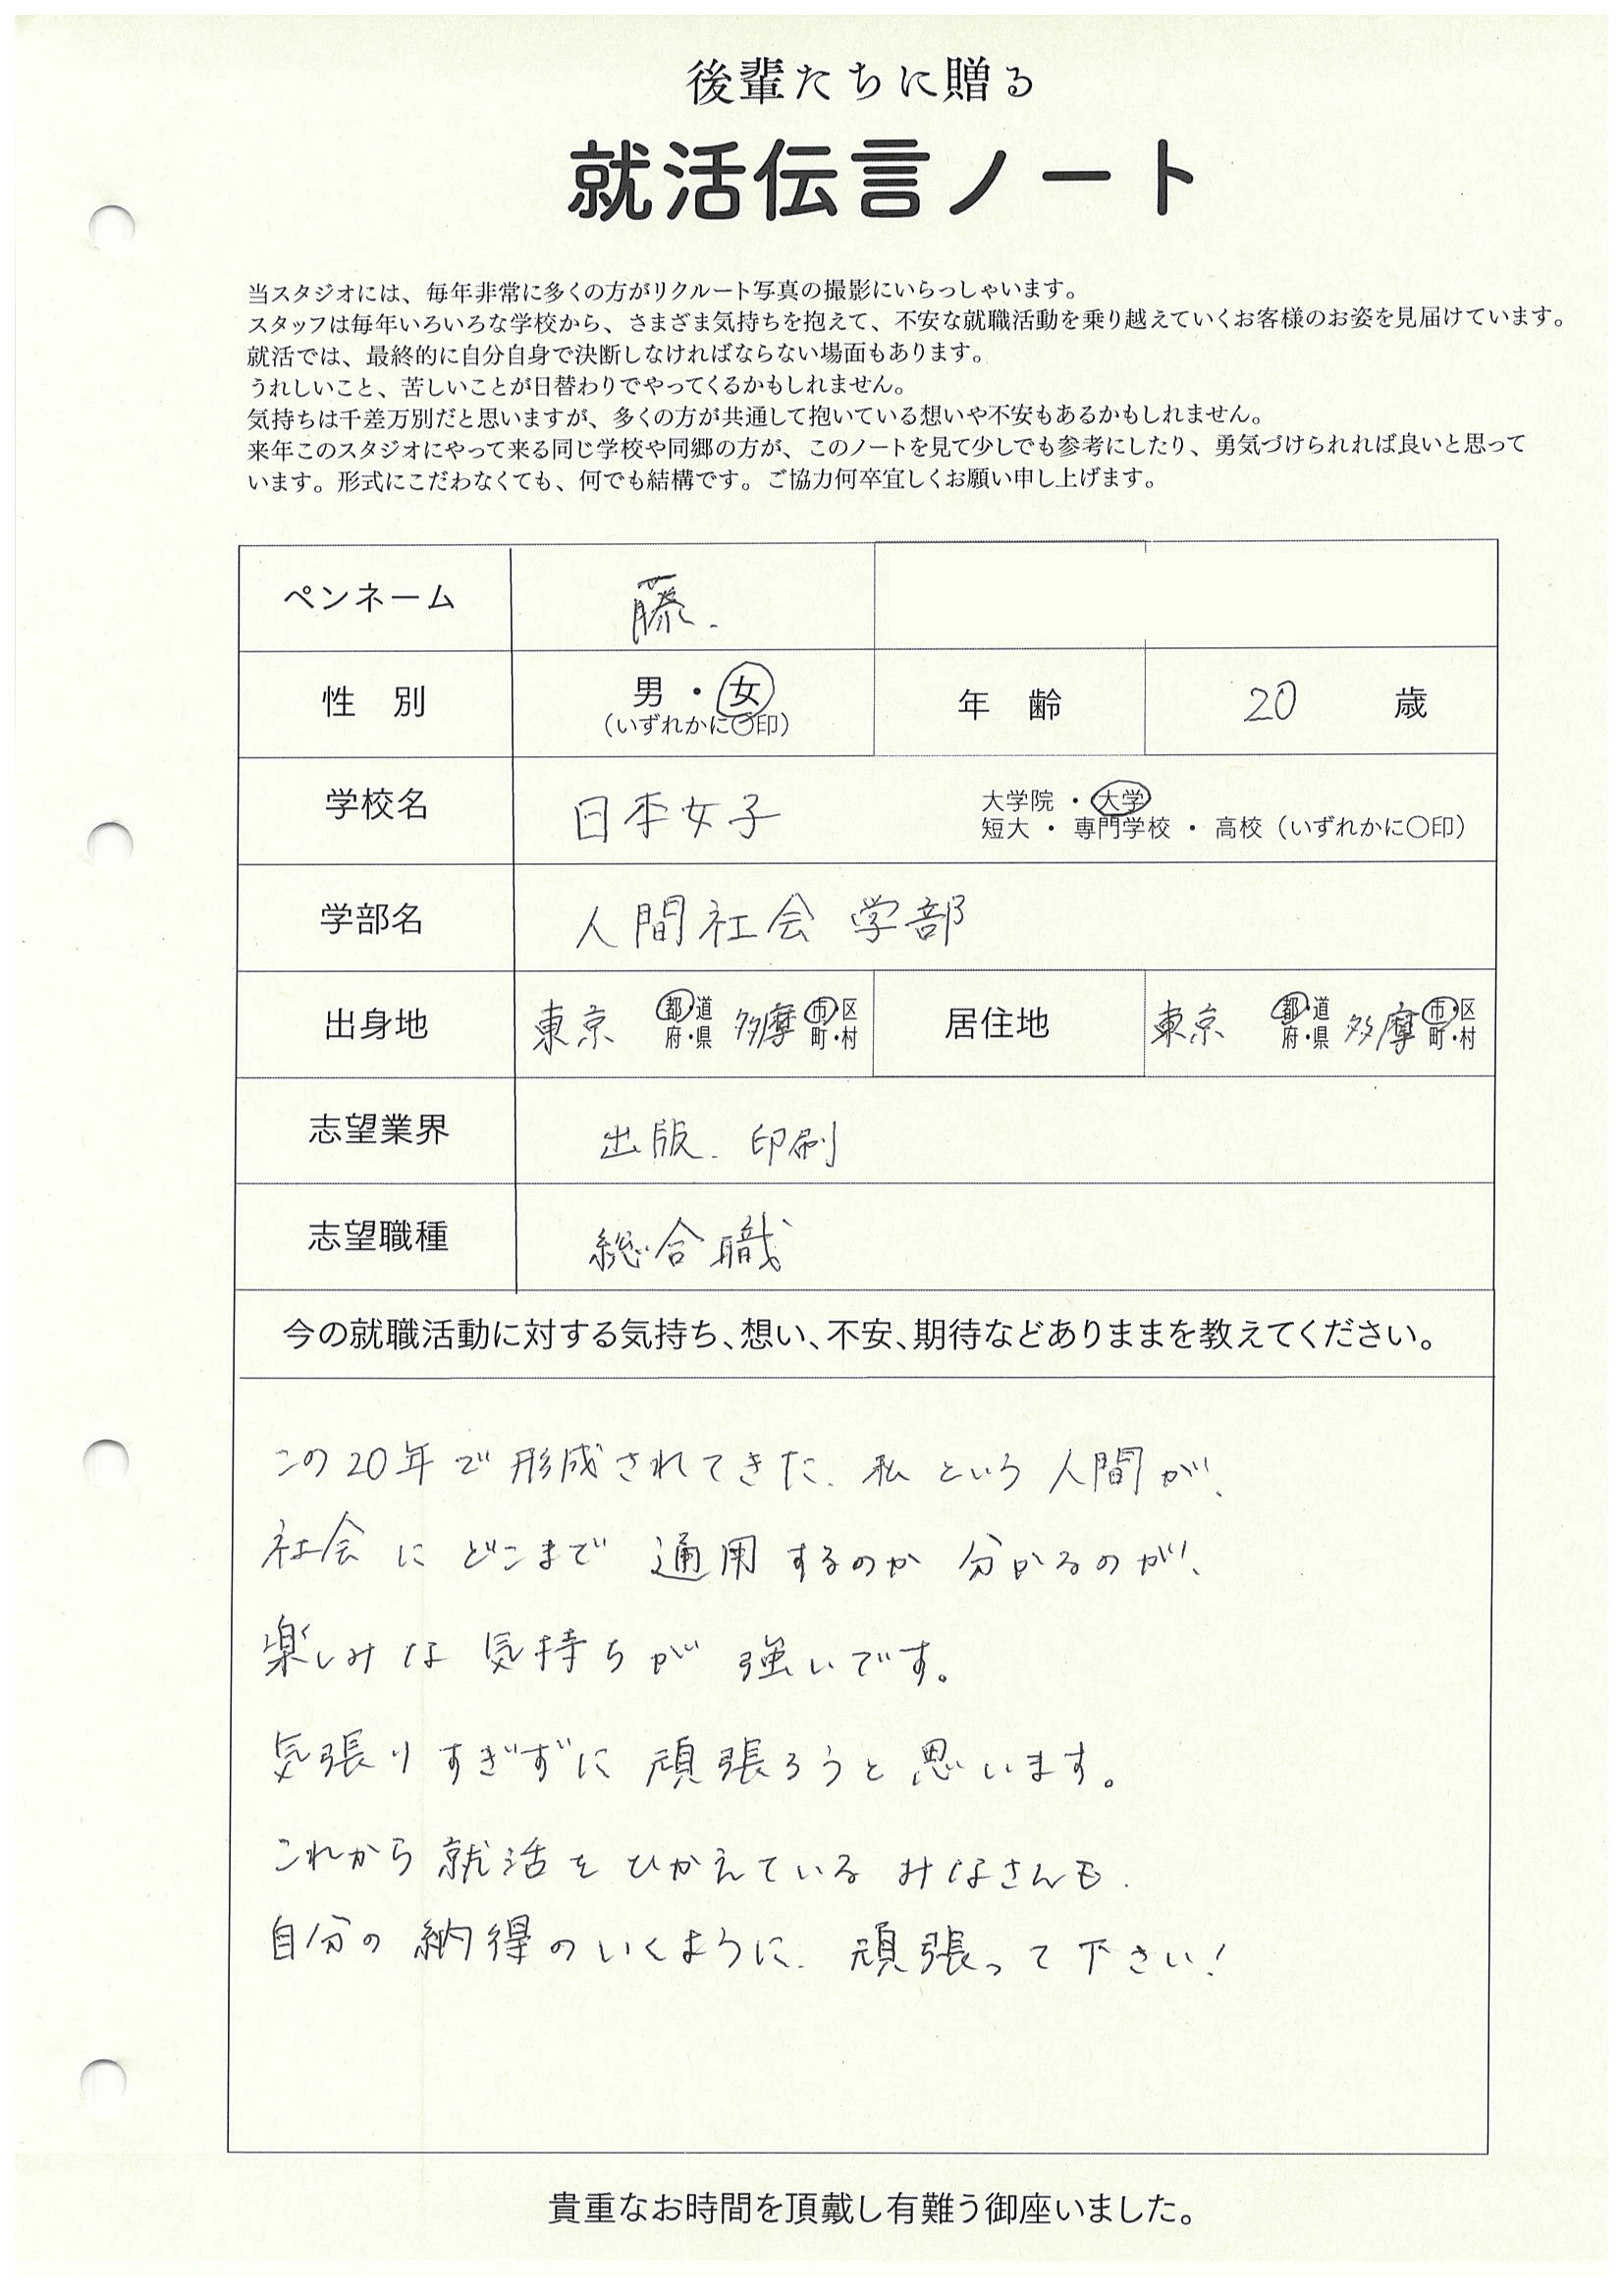 後輩たちに贈る
就活伝言ノート
当スタジオには、毎年非常に多くの方がリクルート写真の撮影にいらっしゃいます。
スタッフは毎年いろいろな学校から、さまざま気持ちを抱えて、不安な就職活動を乗り越えていくお客様のお姿を見届けています。
就活では、最終的に自分自身で決断しなければならない場面もあります。
うれしいこと、苦しいことが日替わりでやってくるかもしれません。
気持ちは千差万別だと思いますが、多くの方が共通して抱いている想いや不安もあるかもしれません。
来年このスタジオにやって来る同じ学校や同郷の方が、このノートを見て少しでも参考にしたり、勇気づけられれば良いと思って
います。形式にこだわなくても、何でも結構です。ご協力何卒宜しくお願い申し上げます。
ペンネーム 藤.
性 別 男 ・ 女 (いずれかに〇印) 年 齢 20 歳
学校名 日本女子 大学院 ・ 大学
短大 ・ 専門学校 ・ 高校 (いずれかに〇印)
学部名 人間社会 学部
出身地 東京 都・道 府・県 多摩 市・区 町・村 居住地 東京 都・道 府・県 多摩 市・区 町・村
志望業界 出版. 印刷
志望職種 総合職
今の就職活動に対する気持ち、想い、不安、期待などありままを教えてください。
この20年で形成されてきた、私という人間が、
社会にどこまで通用するのか分かるのが、
楽しみな気持ちが強いです。
気張りすぎずに頑張ろうと思います。
これから就活をひかえているみなさんも、
自分の納得のいくように、頑張って下さい!
貴重なお時間を頂戴し有難う御座いました。